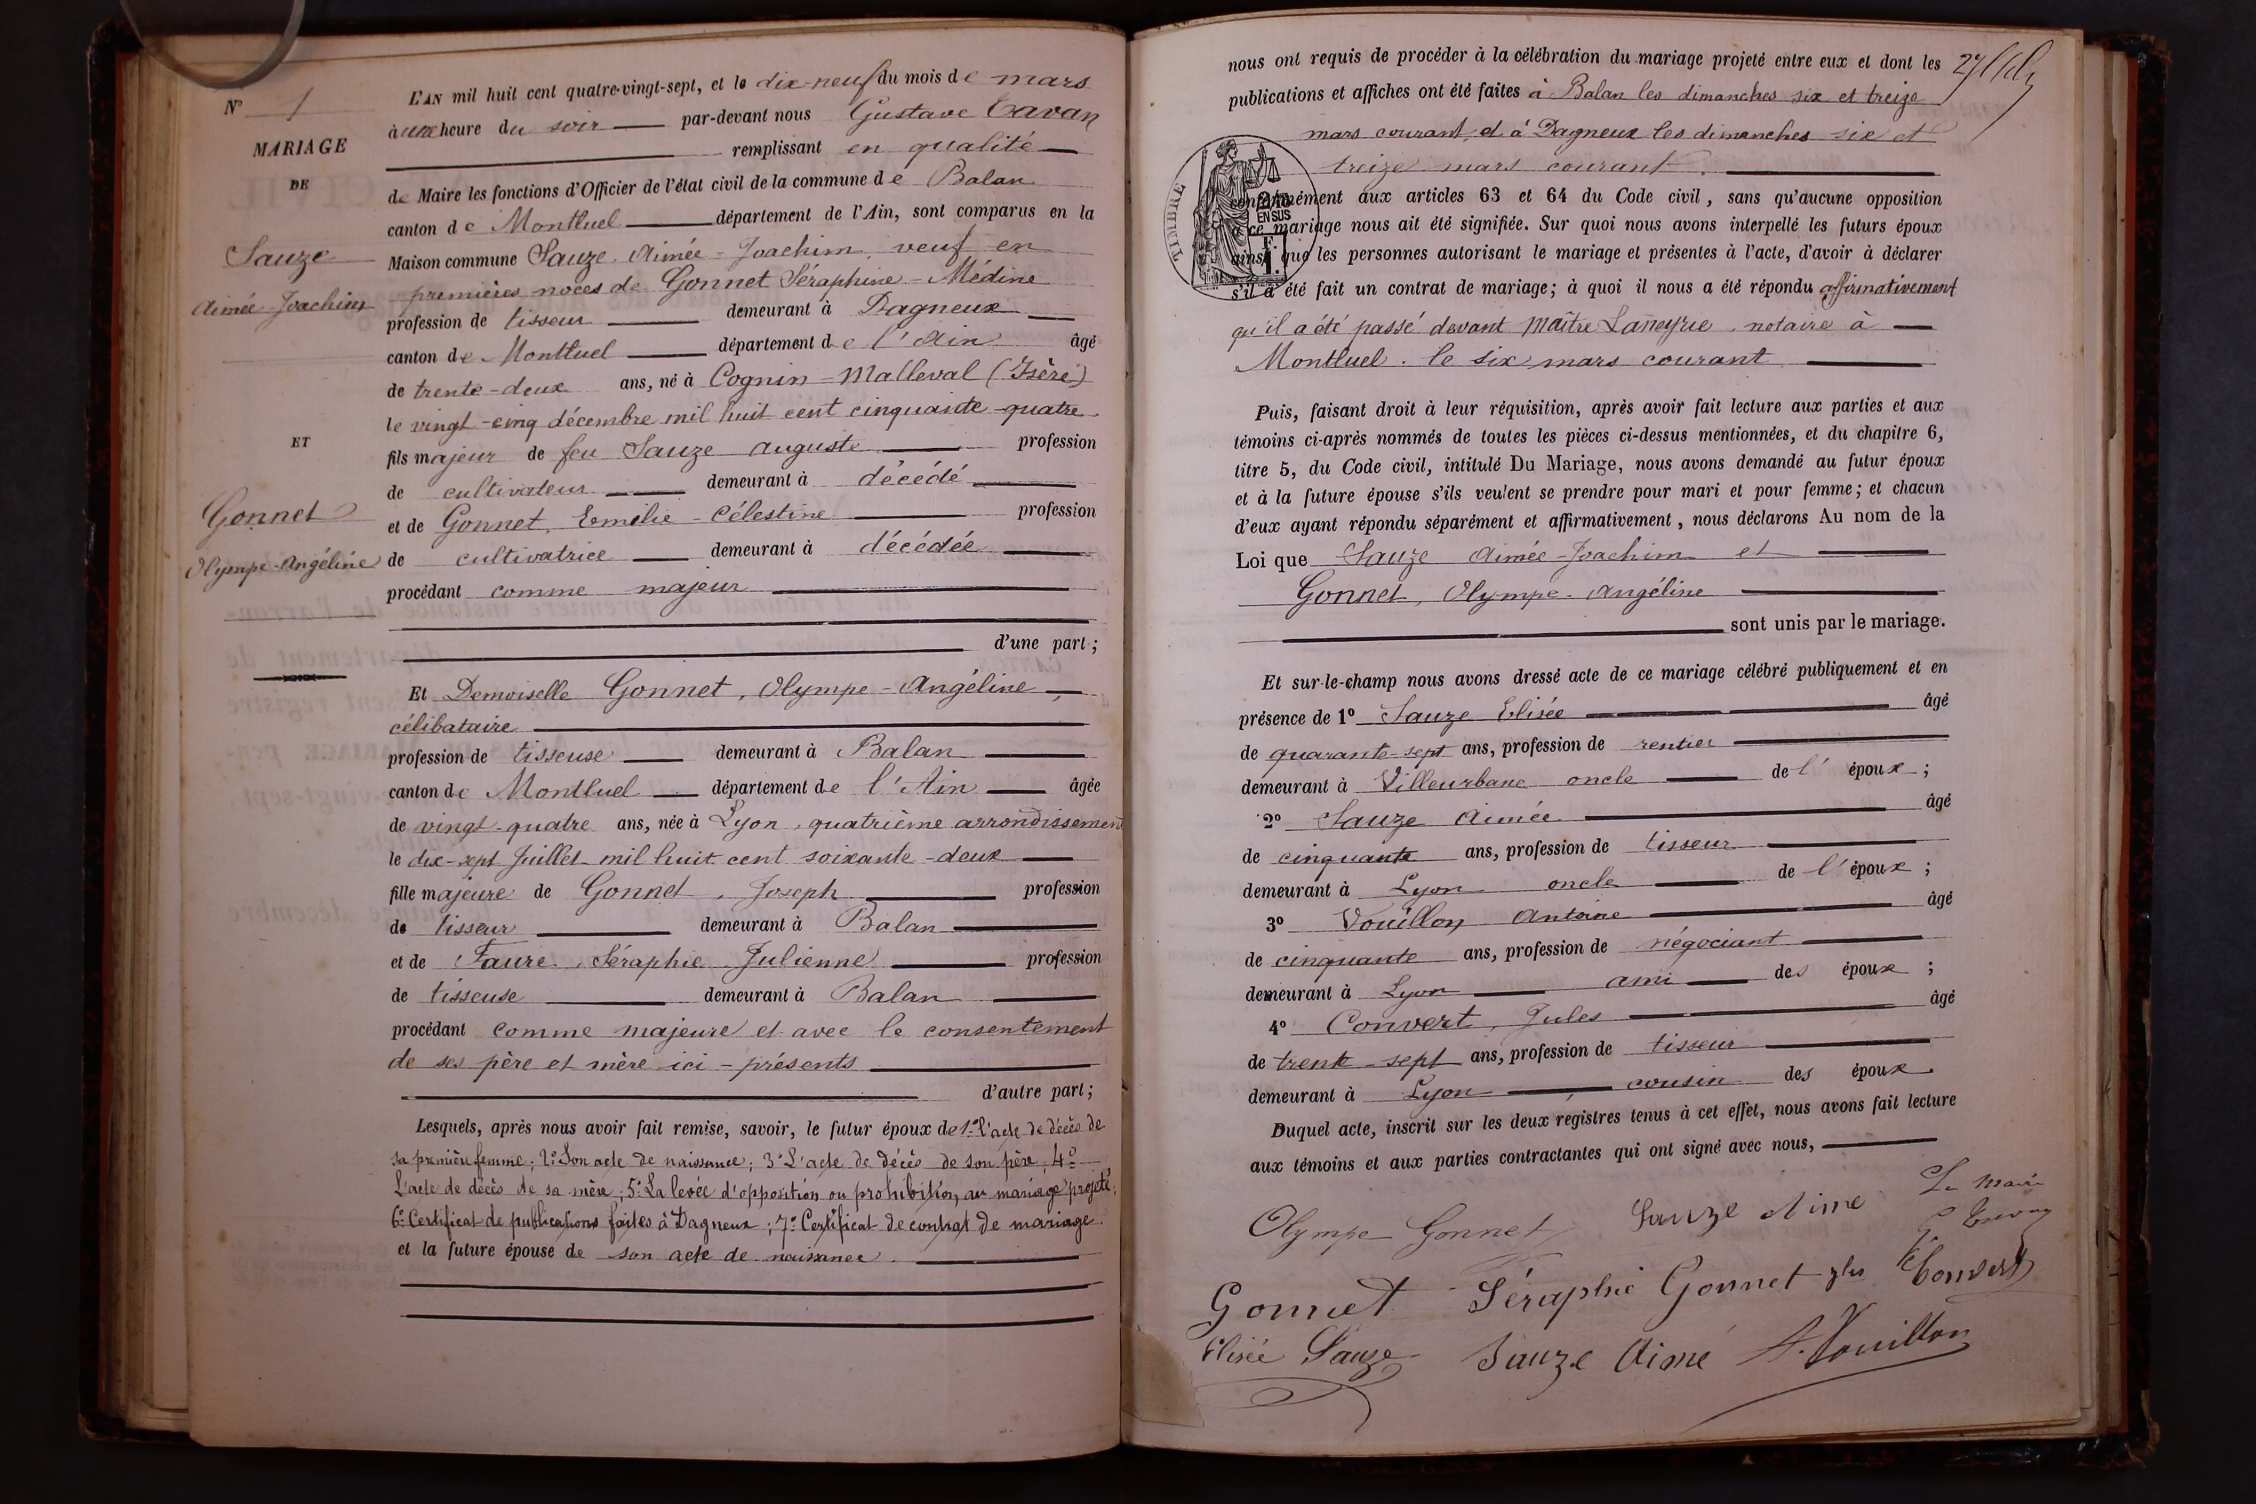 N° 1
MARIAGE
DE
Sauze
Aimée-Joachim
ET
Gonnet
Olympe-Angéline
L'AN mil huit cent quatre-vingt-sept, et le dix-neuf du mois de mars
à une heure du soir par-devant nous Gustave Cavan
remplissant en qualité
de Maire les fonctions d'Officier de l'état civil de la commune de Balan
canton de Montluel département de l'Ain, sont comparus en la
Maison commune Sauze, Aimée-Joachim, veuf en
premières noces de Gonnet Séraphine-Médine
profession de tisseur demeurant à Dagneux
canton de Montluel département de l'Ain âgé
de trente-deux ans, né à Cognin-Malleval (Isère)
le vingt-cinq décembre mil huit cent cinquante-quatre
fils majeur de feu Sauze Auguste profession
de cultivateur demeurant à décédé
et de Gonnet, Emélie-Célestine profession
de cultivatrice demeurant à décédée
procédant comme majeur
d'une part;
Et Demoiselle Gonnet, Olympe-Angéline,
célibataire
profession de tisseuse demeurant à Balan
canton de Montluel département de l'Ain âgée
de vingt-quatre ans, née à Lyon, quatrième arrondissement
le dix-sept Juillet mil huit cent soixante-deux
fille majeure de Gonnet, Joseph profession
de tisseur demeurant à Balan
et de Faure, Séraphie Julienne profession
de tisseuse demeurant à Balan
procédant comme majeure et avec le consentement
de ses père et mère ici-présents
d'autre part;
Lesquels, après nous avoir fait remise, savoir, le futur époux de 1° l'acte de décès de
sa première femme; 2° Son acte de naissance; 3° L'acte de décès de son père, 4°
L'acte de décès de sa mère; 5° La levée d'opposition ou prohibition, au mariage projeté;
6° Certificat de publications faites à Dagneux; 7° Certificat de contrat de mariage.
et la future épouse de son acte de naissance.
nous ont requis de procéder à la célébration du mariage projeté entre eux et dont les
publications et affiches ont été faites à Balan les dimanches six et treize
mars courant, et à Dagneux les dimanches six et
treize mars courant.
TIMBRE
2/10
EN SUS
conformément aux articles 63 et 64 du Code civil, sans qu'aucune opposition
à ce mariage nous ait été signifiée. Sur quoi nous avons interpellé les futurs époux
ainsi que les personnes autorisant le mariage et présentes à l'acte, d'avoir à déclarer
s'il a été fait un contrat de mariage; à quoi il nous a été répondu affirmativement
qu'il a été passé devant Maître Laneyrie, notaire à
Montluel, le six mars courant
Puis, faisant droit à leur réquisition, après avoir fait lecture aux parties et aux
témoins ci-après nommés de toutes les pièces ci-dessus mentionnées, et du chapitre 6,
titre 5, du Code civil, intitulé Du Mariage, nous avons demandé au futur époux
et à la future épouse s'ils veulent se prendre pour mari et pour femme; et chacun
d'eux ayant répondu séparément et affirmativement, nous déclarons Au nom de la
Loi que Sauze Aimée-Joachim et
Gonnet, Olympe-Angéline
sont unis par le mariage.
Et sur-le-champ nous avons dressé acte de ce mariage célébré publiquement et en
présence de 1° Sauze Elisée âgé
de quarante-sept ans, profession de rentier
demeurant à Villeurbane oncle de l'époux;
2° Sauze Aimée âgé
de cinquante ans, profession de tisseur
demeurant à Lyon oncle de l'époux;
3° Vouillon Antoine âgé
de cinquante ans, profession de négociant
demeurant à Lyon ami des époux;
4° Convert, Jules âgé
de trente-sept ans, profession de tisseur
demeurant à Lyon, cousin des époux.
Duquel acte, inscrit sur les deux registres tenus à cet effet, nous avons fait lecture
aux témoins et aux parties contractantes qui ont signé avec nous,
Olympe Gonnet Sauze Aime Le Maire
Gonnet Séraphie Gonnet Convert
Elisée Sauze Sauze Aimé A. Vouillon